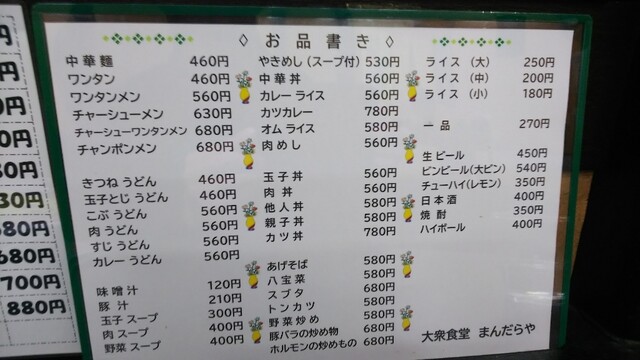 ◇ お品書き ◇
中華麺 460円
ワンタン 460円
ワンタンメン 560円
チャーシューメン 630円
チャーシューワンタンメン 680円
チャンポンメン 680円
きつねうどん 460円
玉子とじうどん 460円
こぶうどん 560円
肉うどん 560円
すじうどん 560円
カレーうどん 560円
味噌汁 120円
豚汁 210円
玉子スープ 300円
肉スープ 400円
野菜スープ 400円
やきめし(スープ付) 530円
中華丼 560円
カレーライス 560円
カツカレー 780円
オムライス 580円
肉めし 560円
玉子丼 560円
肉丼 560円
他人丼 580円
親子丼 580円
カツ丼 780円
あげそば 580円
八宝菜 580円
スブタ 580円
トンカツ 580円
野菜炒め 580円
豚バラの炒め物 680円
ホルモンの炒めもの 680円
ライス (大) 250円
ライス (中) 200円
ライス (小) 180円
一品 270円
生ビール 450円
ビンビール(大ビン) 540円
チューハイ(レモン) 350円
日本酒 400円
焼酎 350円
ハイボール 400円
大衆食堂 まんだらや
680円
700円
880円